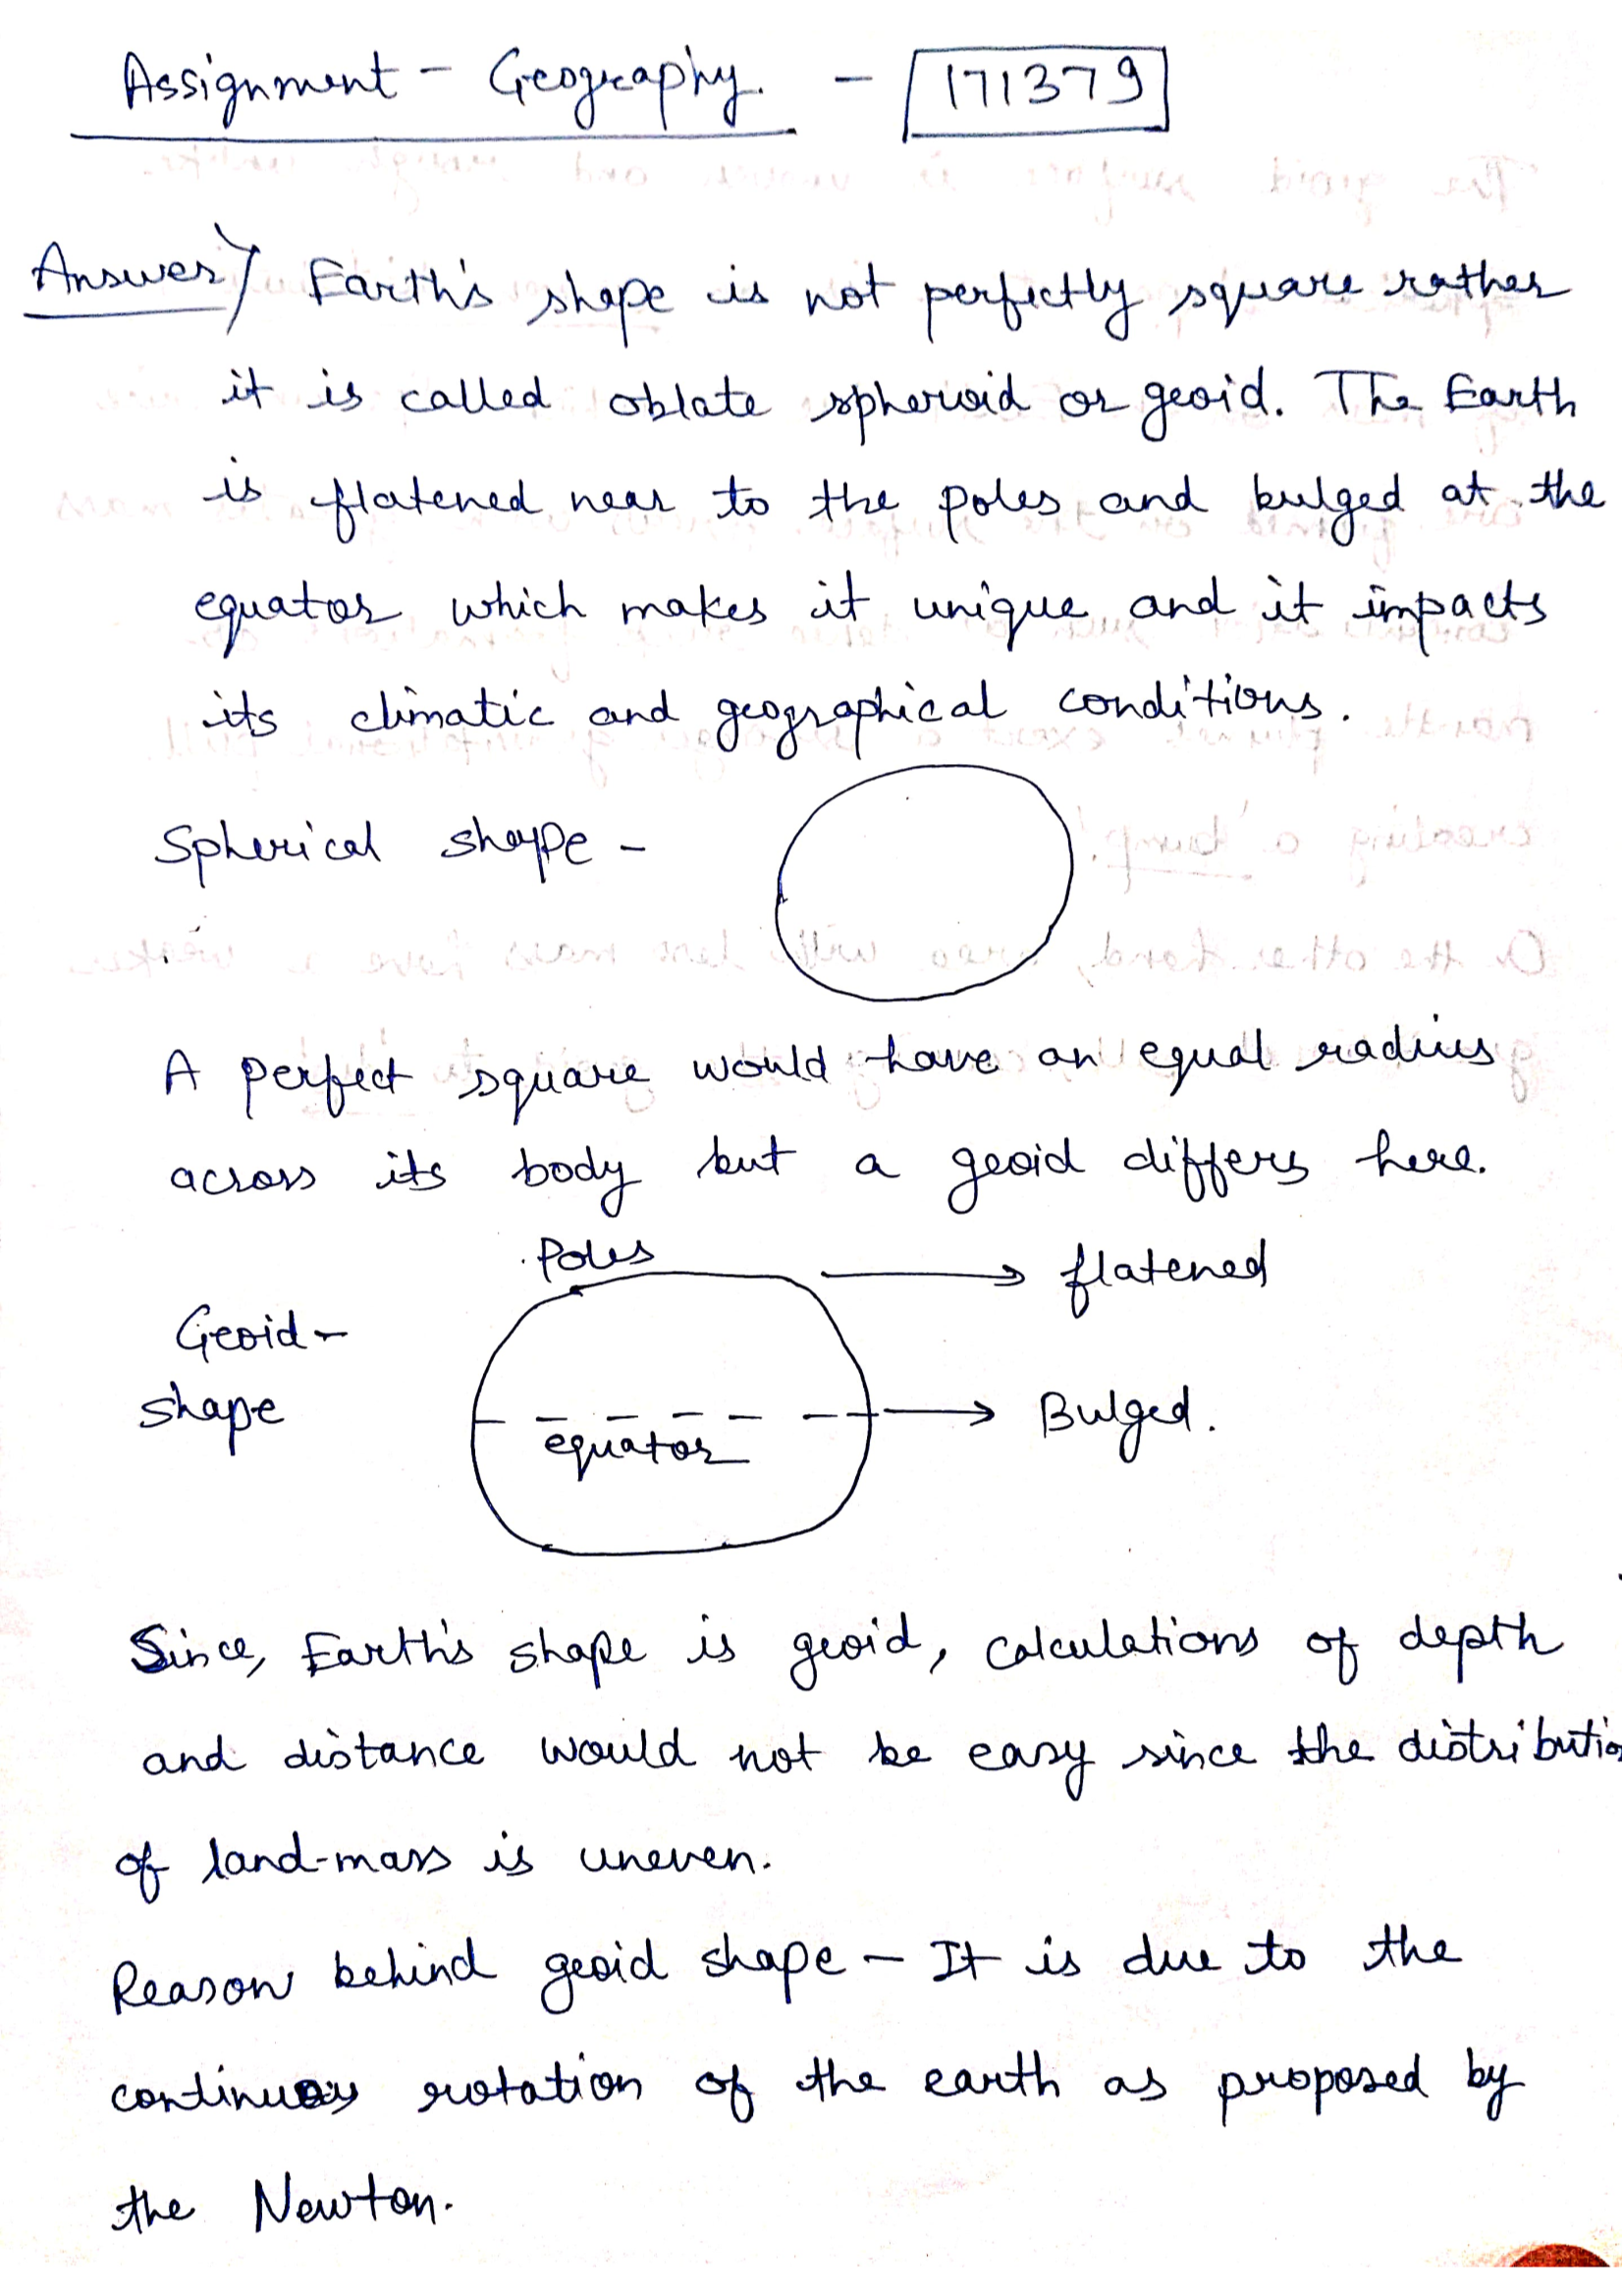 Assignment - Geography. - 171379
Answer) Earth's shape is not perfectly square rather
it is called oblate spheroid or geoid. The Earth
is flatened near to the poles and bulged at the
equator which makes it unique and it impacts
its climatic and geographical conditions.
Spherical shape -
A perfect square would have an equal radius
across its body but a geoid differs here.
Poles
flatened
Geoid -
shape
equator
Bulged.
Since, Earth's shape is geoid, calculations of depth
and distance would not be easy since the distributio
of land-mass is uneven.
Reason behind geoid shape - It is due to the
continuous rotation of the earth as proposed by
the Newton.